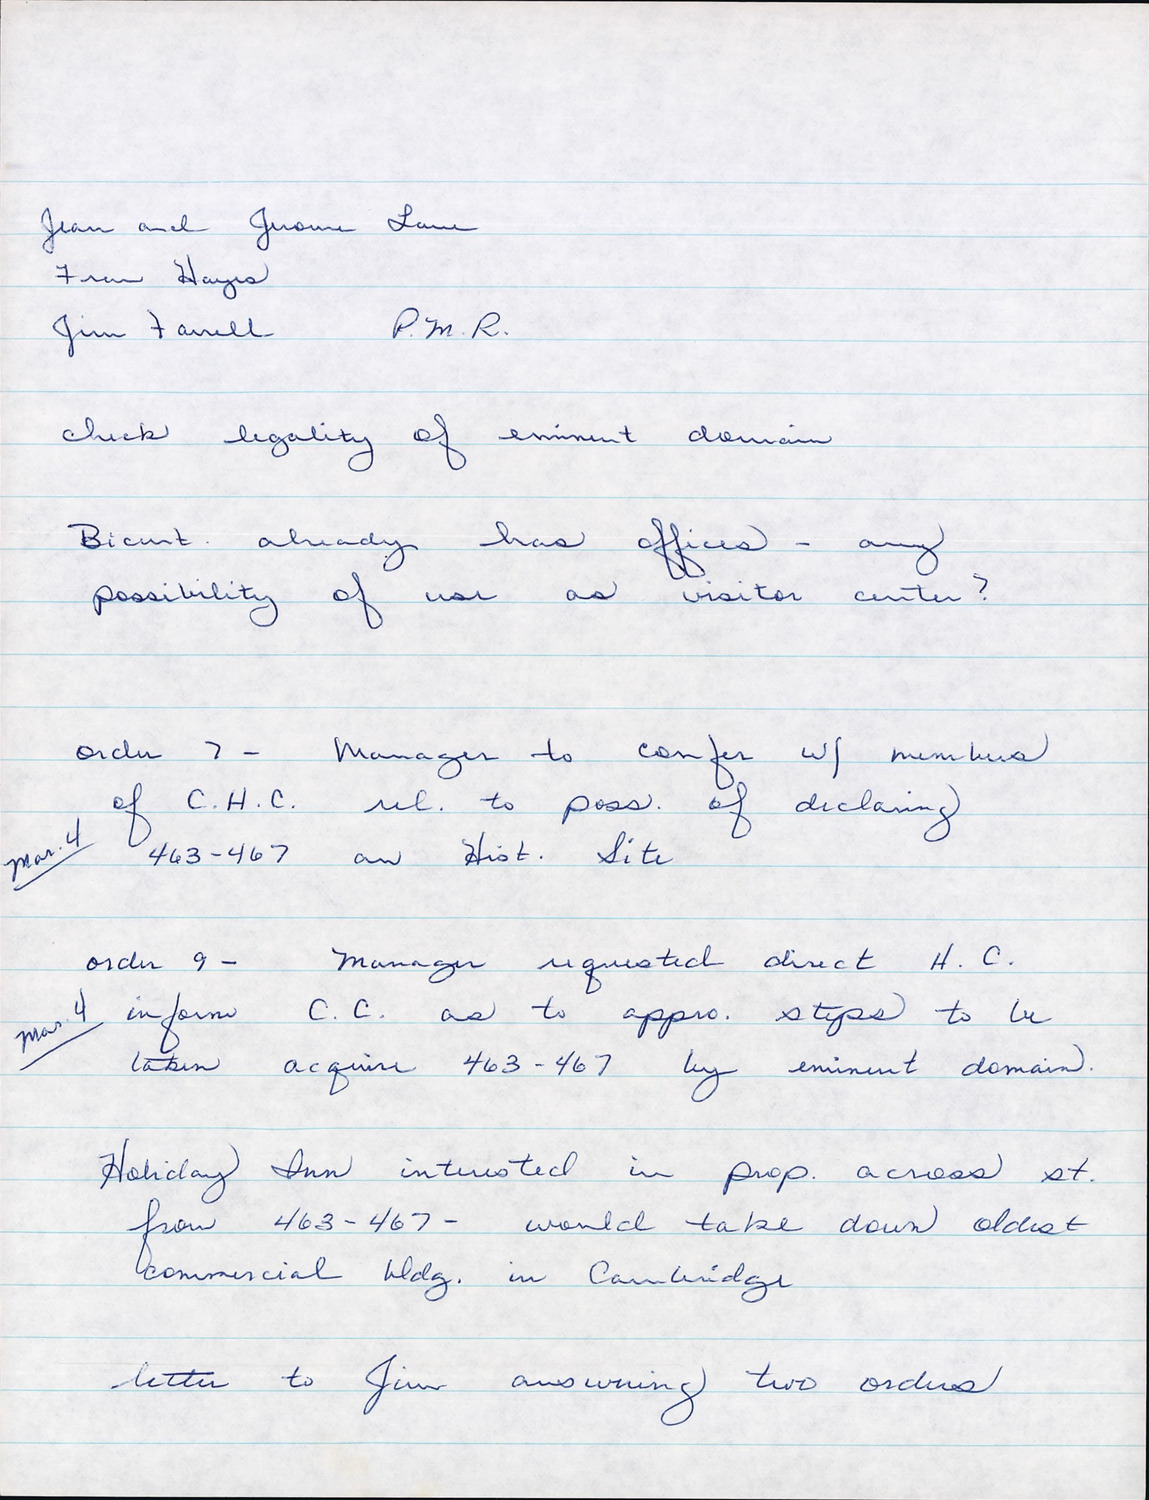 Jean and Jerome Lane
Fran Hayes
Jim Farrell P.M.R.
check legality of eminent domain
Bicent. already has offices - any
possibility of use as visitor center?
order 7 - Manager to confer w/ members
of C.H.C. rel. to poss. of declaring
Mar. 4 463-467 an Hist. Site
order 9 - Manager requested direct H.C.
Mar. 4 inform C.C. as to appro. steps to be
taken acquire 463-467 by eminent domain.
Holiday Inn interested in prop. across st.
from 463-467 - would take down oldest
commercial bldg. in Cambridge
letter to Jim answering two orders